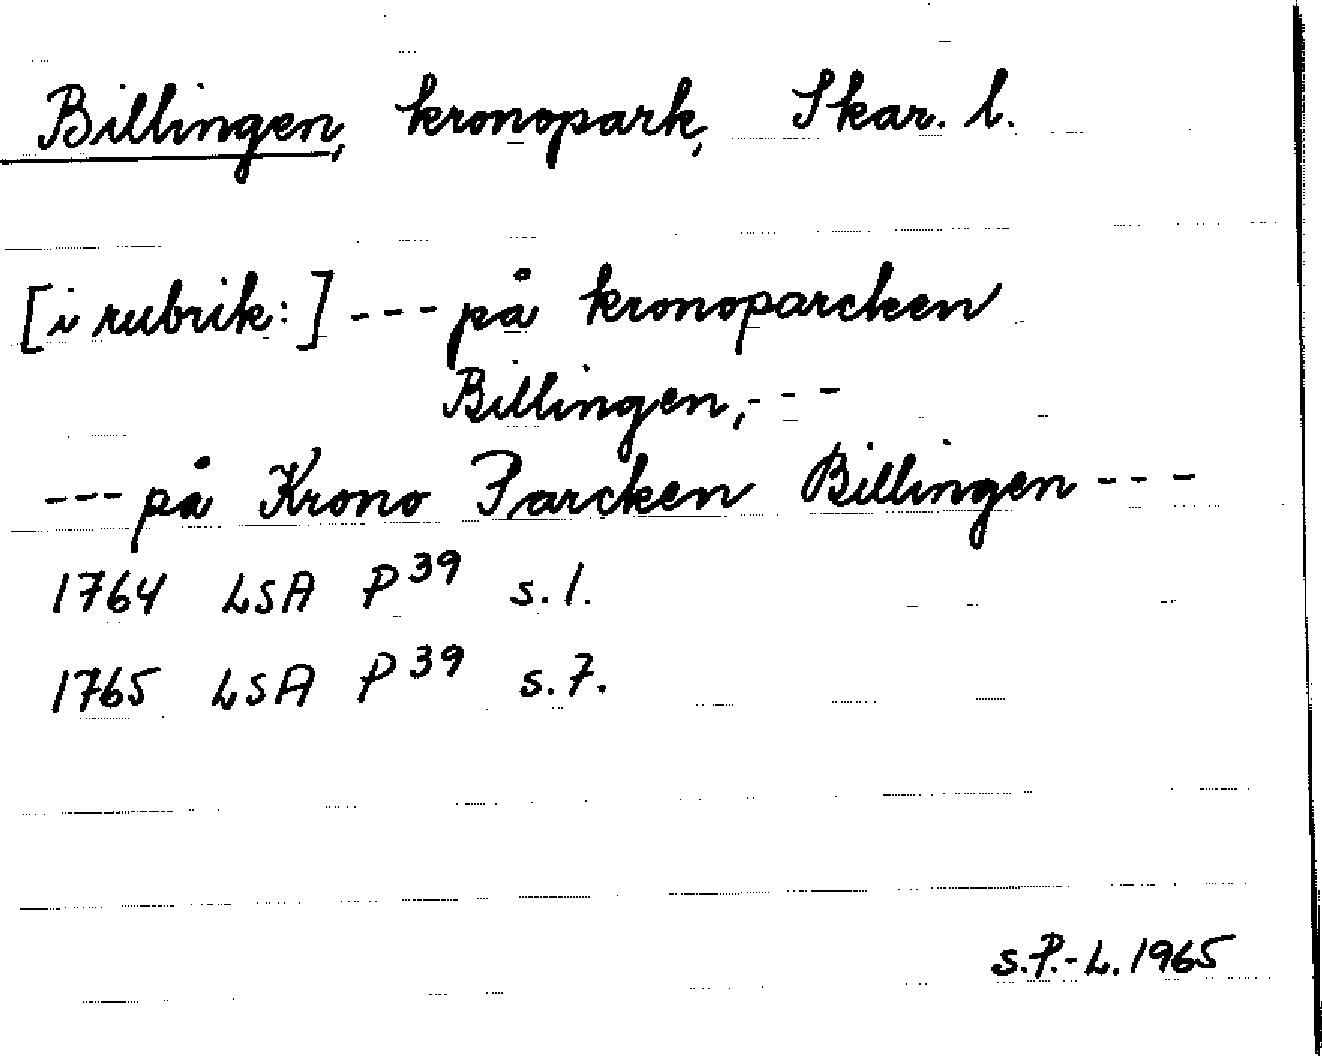 Billingen, kronopark, Skar. l.
[i rubrik:] --- på kronoparcken
Billingen, ---
--- på Krono Parcken Billingen ---
1764 LSA P 39 s. 1.
1765 LSA P 39 s. 7.
S.P.-L. 1965